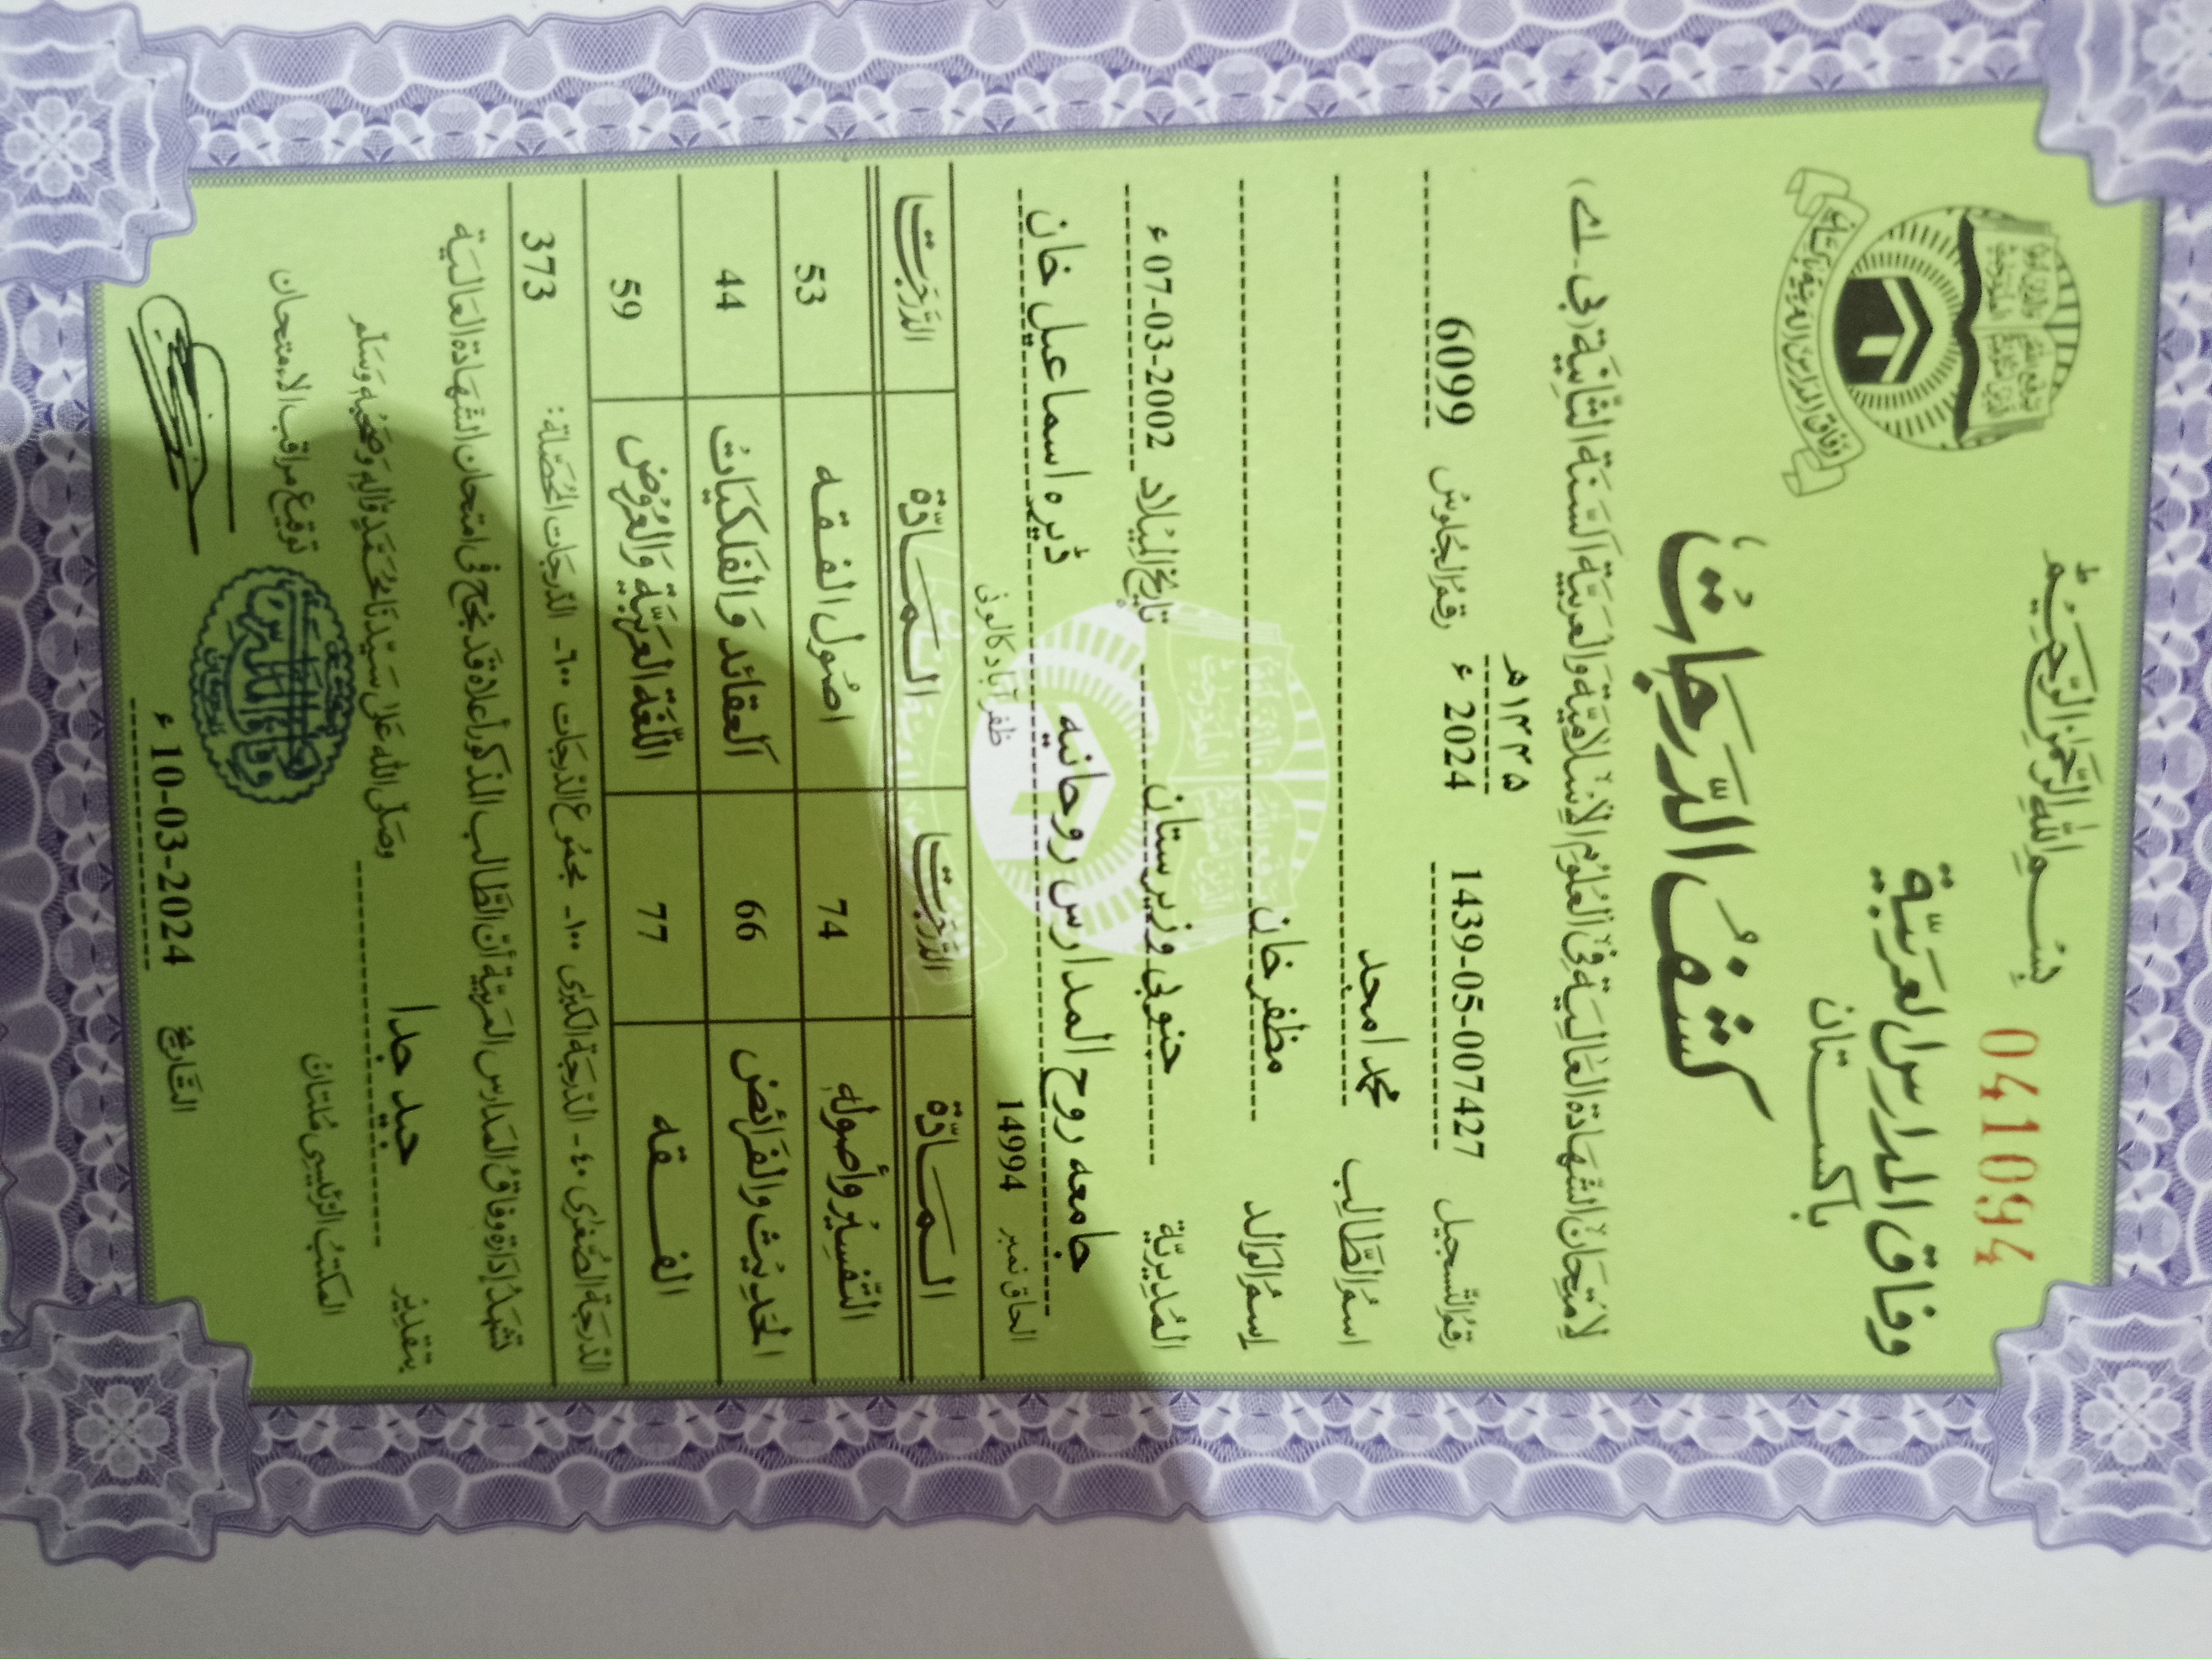 بِسْمِ اللّٰهِ الرَّحْمٰنِ الرَّحِيْمِ
041094
وفاق المدارس العربیة
باكستان
وفاق المدارس العربیة پاکستان
كشفُ الدَّرَجَاتُ
لِامْتِحَانِ الشَّهَادَةِ الْعَالِيَةِ فِي الْعُلُوْمِ الْاِسْلَامِيَّةِ وَالْعَرَبِيَّةِ اَلسَّنَةُ الثَّانِيَة (بی-اے)
۱۴۴۵ھ
رقمُ التَّسجيل 1439-05-007427 2024 ء رقمُ الجُلوسُ 6099
اسمُ الطَّالِب محمد امجد
اِسمُ الوَالد مظفر خان
المُدِيريَّة جنوبی وزیرستان تاريخُ المِيْلاد 07-03-2002 ء
جامعه روح المدارس روحانیه ڈیرہ اسماعیل خان
الحاق نمبر 14994 ظفر آباد کالونی
المَادّة الدَّرَجَت المَادّة الدَّرَجَت
التَّفسِيْر وأصُولِه 74 اصُول الفقه 53
الحَدِيْث والفَرَائض 66 العقائد وَالفَلَكيَاتُ 44
الفقه 77 اللُّغَة العَرَبيَّة وَالعُرُوض 59
الدَّرَجَة الصُّغرٰى ٤٠ - الدَّرَجَة الكبرٰى ١٠٠ - مجمُوع الدَّرجَات ٦٠٠ - الدَّرجَات المُحَصَّلة: 373
تشهَدُ إدَارة وفاقُ المَدَارس العَربيَّة أنّ الطَّالب المذكور أعلاه قَد نجح فى امتحَان الشهَادَة العَاليَة
بتقدِيْر جيد جدا وصَلّى الله عَلى سَيّدنَا مُحَمَّدٍ وَّاٰلِهٖ وَصَحْبِهٖ وَسَلَّم
المكتبُ الرَّئيسى مُلتان توقيع مراقب الامتحان
التَّاريخ 10-03-2024 ء